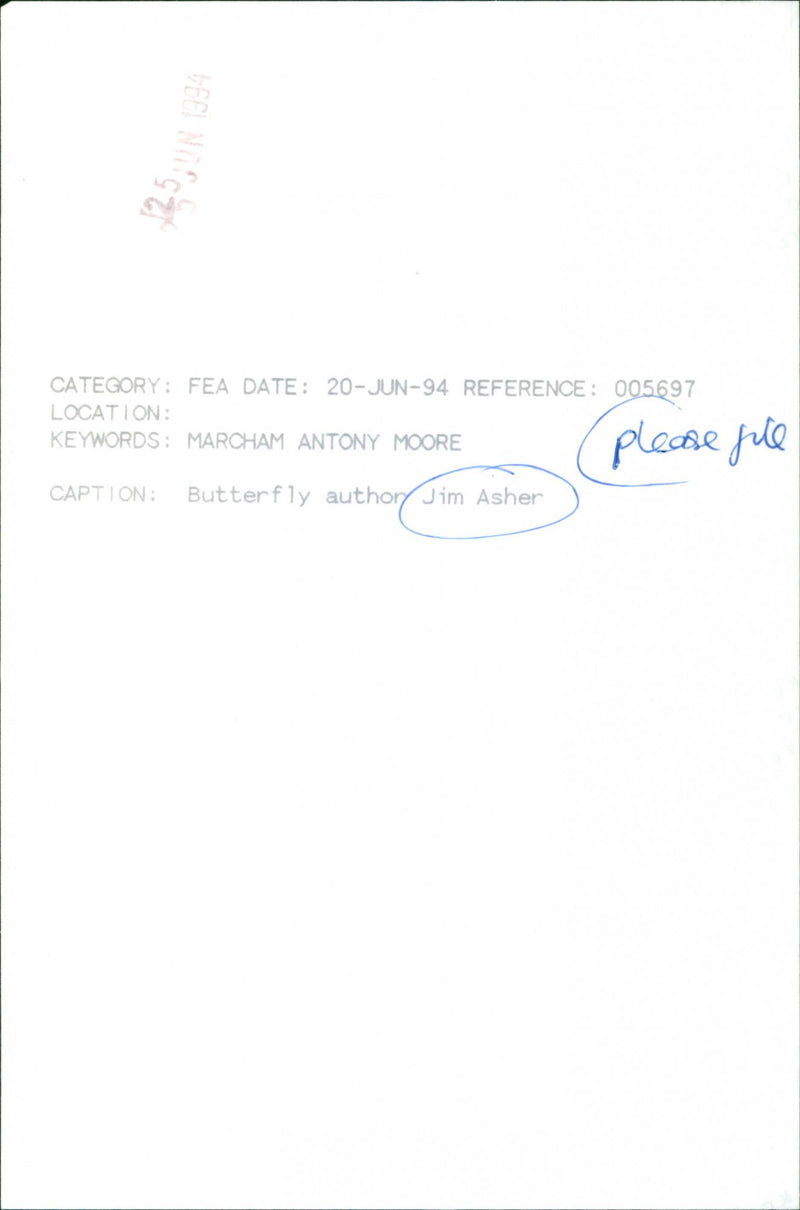 25 JUN 1994
CATEGORY: FEA DATE: 20-JUN-94 REFERENCE: 005697
LOCATION:
KEYWORDS: MARCHAM ANTONY MOORE
please file
CAPTION: Butterfly author Jim Asher